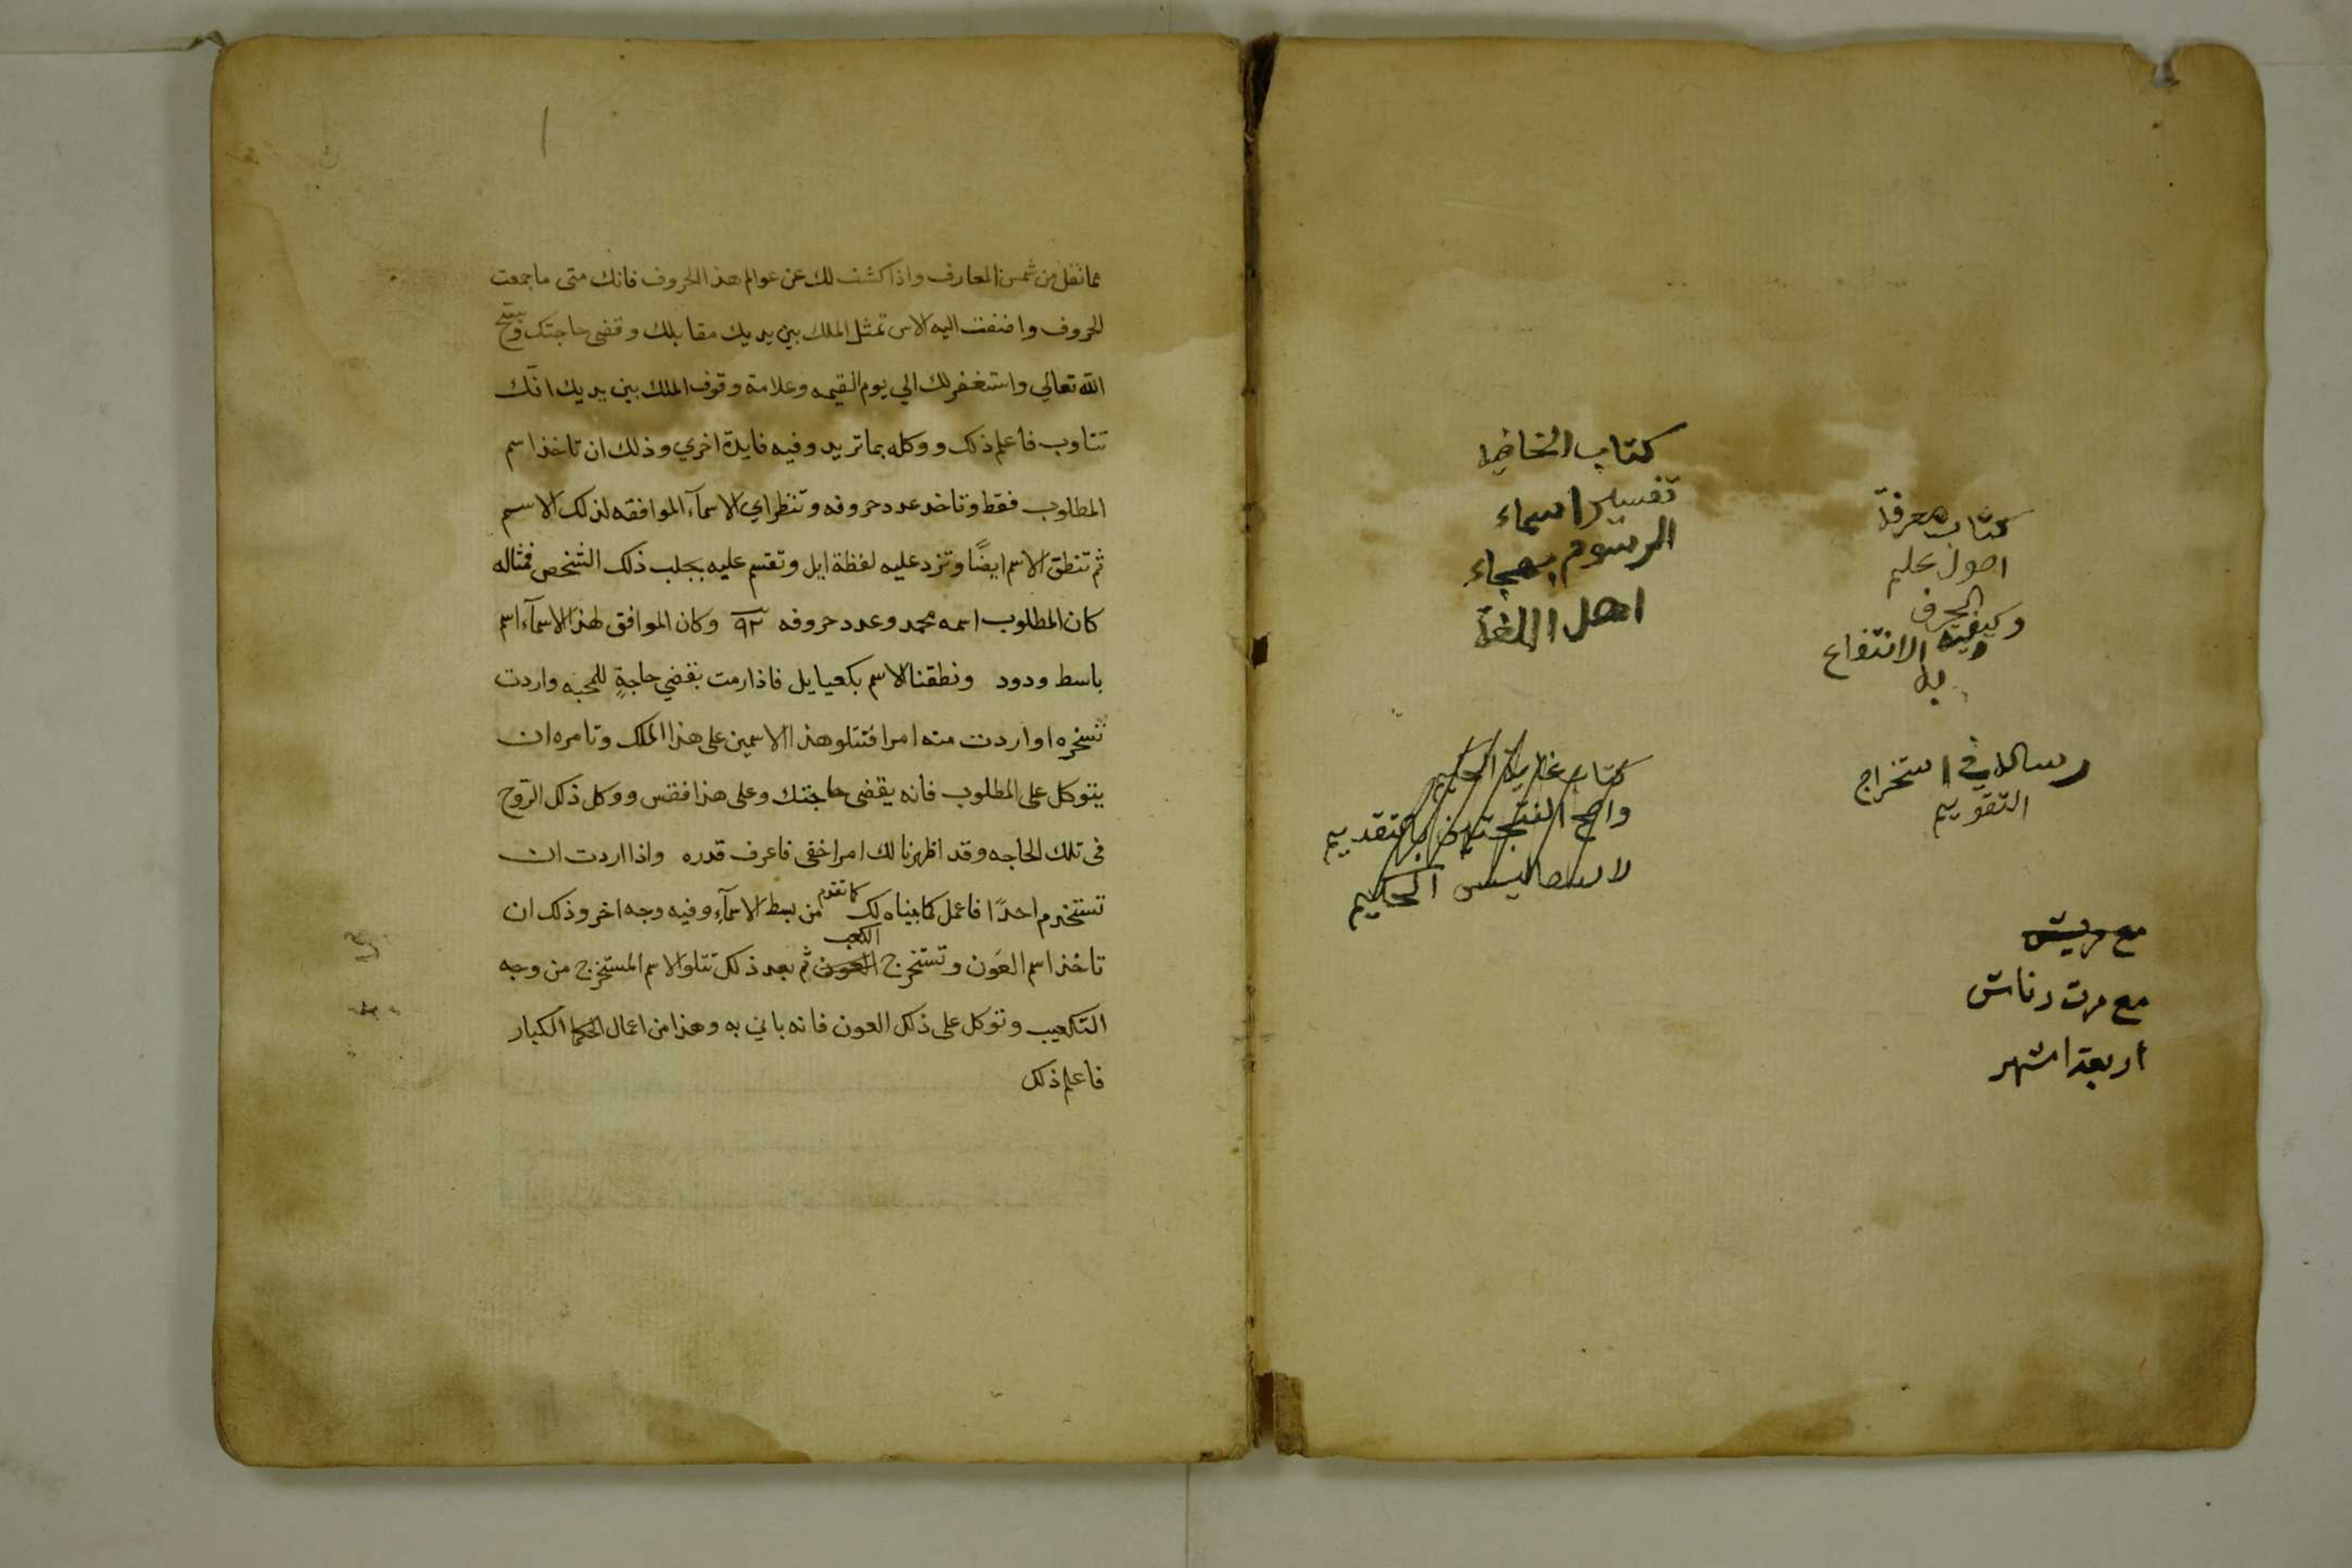 كتاب معرفة
اصول علم
الحرف
وكيفية الانتفاع
به
رسالة في استخراج
التقويم
مع
مع مرت دناش
اربعة اشهر
كتاب
تفسير اسماء
الرسوم بهجاء
اهل اللغة
كتاب غاية الحكيم
بالتقديم
الحكيم
١
مما نقل من شمس المعارف واذا كشف لك عن عوالم هذا الحروف فانك متى ما جمعت
الحروف واضفت اليه الاس تمثل الملك بين يديك مقابلك وقضى حاجتك
الله تعالي واستغفر لك الي يوم القيمه وعلامة وقوف الملك بين يديك انّك
تتاوب فاعلم ذلك ووكله بما تريد وفيه فايدة اخري وذلك ان تاخذ اسم
المطلوب فقط وتاخد عدد حروفه وتنظر اي الاسمآء الموافقه لذلك الاسم
ثم تنطق الاسم ايضًا وتزد عليه لفظة ايل وتقسم عليه بجلب ذلك الشخص فمثاله
كان المطلوب اسمه محمد وعدد حروفه ٩٢ وكان الموافق لهذا الاسمآء اسم
باسط ودود ونطقنا الاسم بكعيايل فاذا رمت بقضي حاجةٍ للمحبه واردت
تسخره او اردت منه امرا فتتلو هذا الاسمين على هذا الملك وتامره ان
يتوكل على المطلوب فانه يقضى حاجتك وعلى هذا فقس ووكل ذلك الرّوح
فى تلك الحاجه وقد اظهرنا لك امرا خفى فاعرف قدره واذا اردت ان
تستخدم احدًا فاعمل كما بيناه لك كما تقدم من بسط الاسمآء وفيه وجه اخر وذلك ان
تاخذ اسم العَون وتستخرج العون الكعب ثم بعد ذلك تتلو الاسم المستخرج من وجه
التكعيب وتوكل على ذلك العون فانه ياتي به وهذا من اعمال الحكما الكبار
فاعلم ذلك